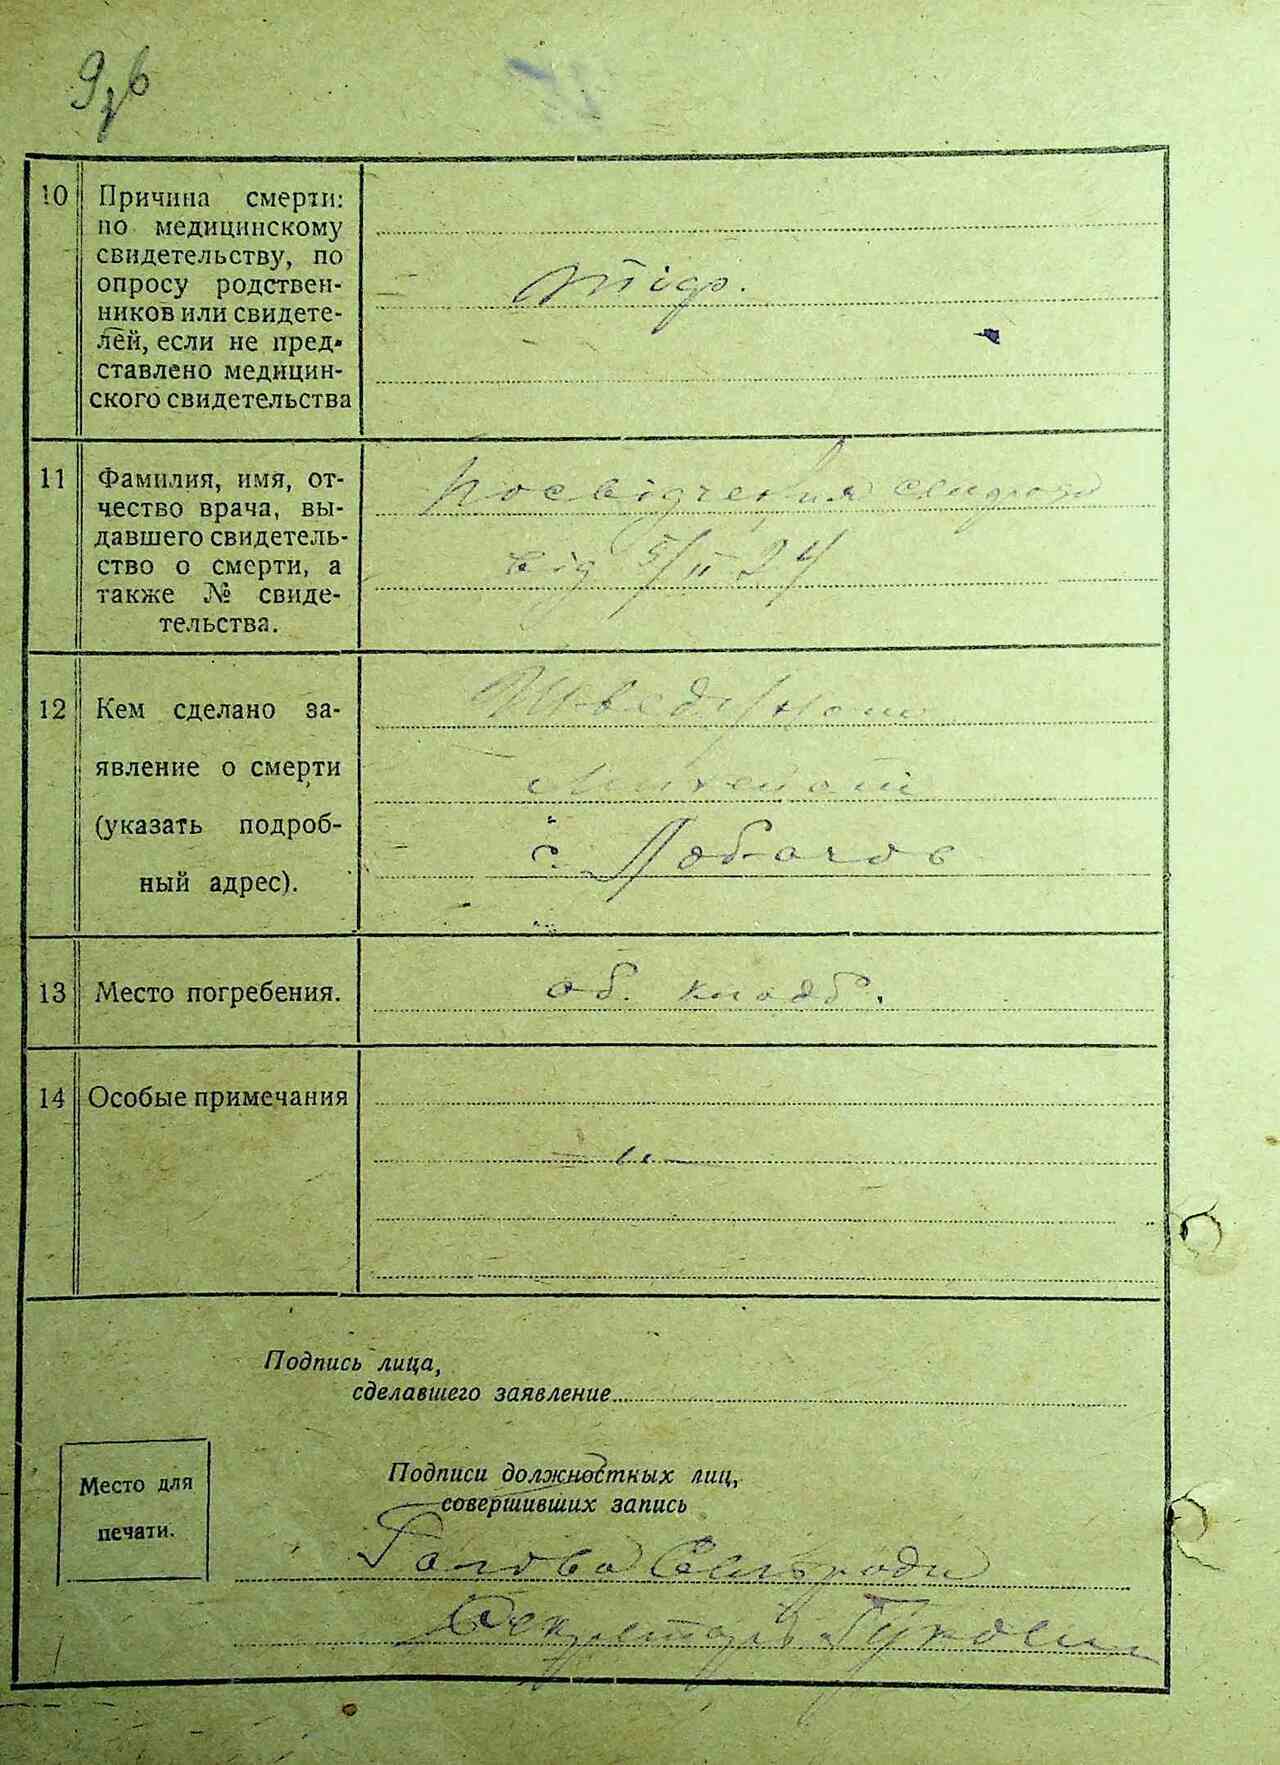 9
10 Причина смерти:
по медицинскому
свидетельству, по
опросу родствен-
ников или свидете-
лей, если не пред-
ставлено медицин-
ского свидетельства
тіф.
11 Фамилия, имя, от-
чество врача, вы-
давшего свидетель-
ство о смерти, а
также № свиде-
тельства.
Посвідчення сільради
від 5/II 24
12 Кем сделано за-
явление о смерти
(указать подроб-
ный адрес).
с. Лобачов
13 Место погребения.
об. кладб.
14 Особые примечания
— " —
Подпись лица,
сделавшего заявление
Место для
печати.
Подписи должностных лиц,
совершивших запись
Голова Сільради
Секретарь